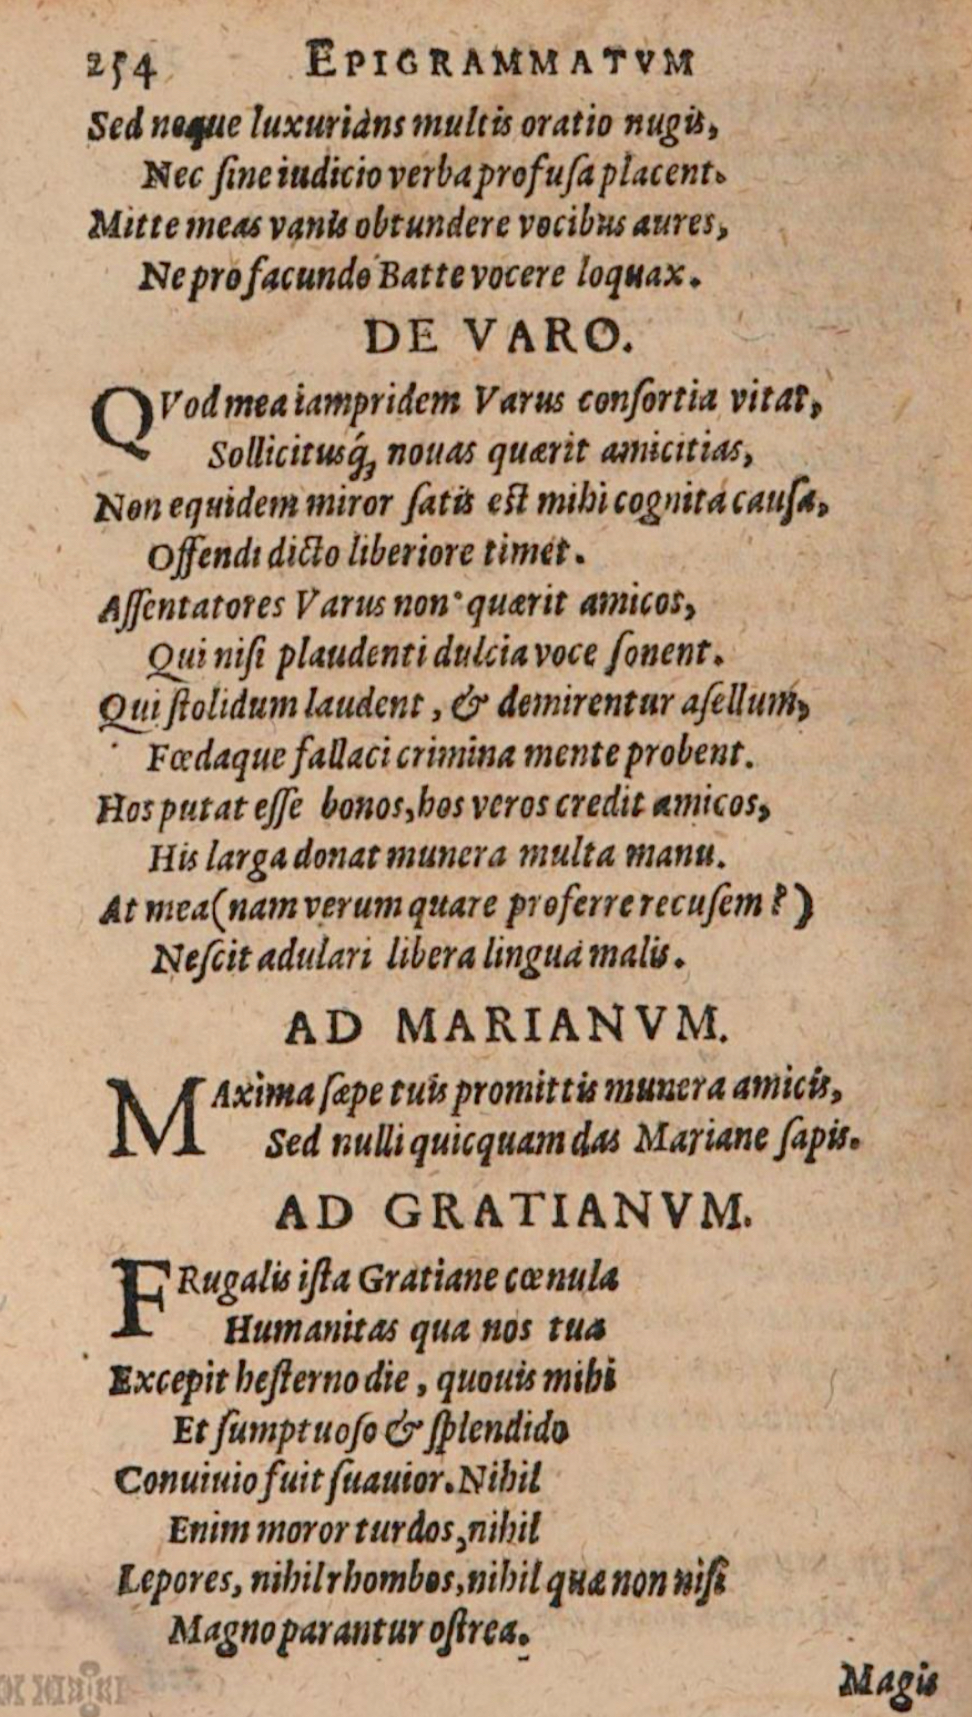 254 EPIGRAMMATVM
Sed neque luxurians multis oratio nugis,
Nec ſine iudicio verba profuſa placent.
Mitte meas vanis obtundere vocibus aures,
Ne pro facundo Batte vocere loquax.
DE VARO.
QVod mea iampridem Varus conſortia vitat,
Sollicitusq́; nouas quærit amicitias,
Non equidem miror ſatis eſt mihi cognita cauſa,
Offendi dicto liberiore timet.
Aſſentatores Varus non quærit amicos,
Qui niſi plaudenti dulcia voce ſonent.
Qui ſtolidum laudent, & demirentur aſellum,
Fœdaque fallaci crimina mente probent.
Hos putat eſſe bonos, hos veros credit amicos,
His larga donat munera multa manu.
At mea (nam verum quare proferre recuſem?)
Neſcit adulari libera lingua malis.
AD MARIANVM.
MAxima ſæpe tuis promittis munera amicis,
Sed nulli quicquam das Mariane ſapis.
AD GRATIANVM.
FRugalis iſta Gratiane cœnula
Humanitas qua nos tua
Excepit heſterno die, quouis mihi
Et ſumptuoſo & ſplendido
Conuiuio fuit ſuauior. Nihil
Enim moror turdos, nihil
Lepores, nihil rhombos, nihil quæ non niſi
Magno parantur oſtrea.
Magis